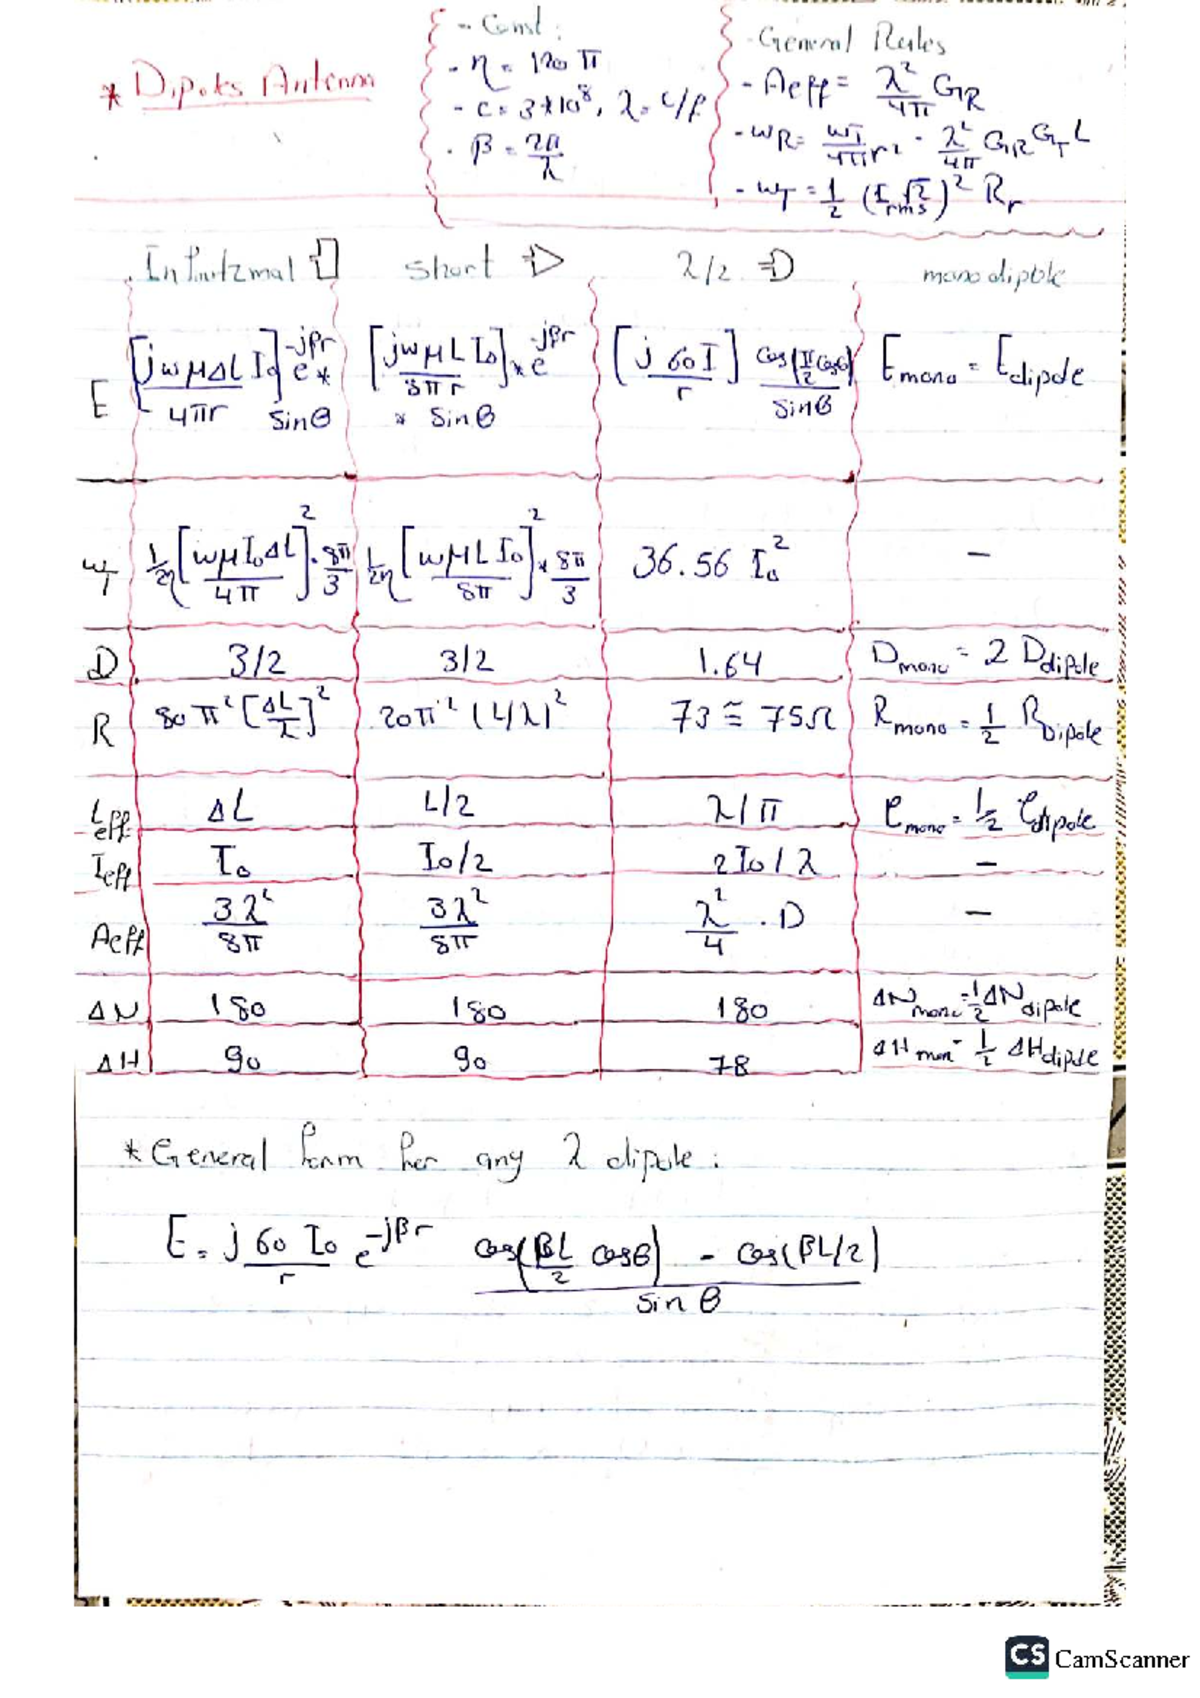 * Dipoles Antenna
- Const:
- η = 120 π
- c = 3*10^8, λ = c/f
- β = 2π/λ
- General Rules
- Aeff = λ²/4π GR
- WR = WT/4πr² · λ²/4π GR GT L
- WT = 1/2 (Irms √2)² Rr
Infinitzmal short λ/2 mono dipole
E [jωμΔL I₀/4πr] e^-jβr * sinθ [jωμL I₀/8πr] * e^-jβr * sinθ [j 60I/r] cos(π/2 cosθ)/sinθ Emono = Edipole
WT 1/2η [ωμI₀ΔL/4π]² · 8π/3 1/2η [ωμL I₀/8π]² * 8π/3 36.56 I₀² -
D 3/2 3/2 1.64 Dmono = 2 Ddipole
R 80π² [ΔL/λ]² 20π² (L/λ)² 73 ≅ 75Ω Rmono = 1/2 RDipole
Leff ΔL L/2 λ/π ℓmono = 1/2 ℓdipole
Ieff I₀ I₀/2 2I₀/λ -
Aeff 3λ²/8π 3λ²/8π λ²/4 . D -
ΔN 180 180 180 ΔNmono = 1/2 ΔNdipole
ΔH 90 90 78 ΔHmon = 1/2 ΔHdipole
* General form for any λ dipole:
E = j 60 I₀/r e^-jβr cos(βL/2 cosθ) - cos(βL/2)/sin θ
CS CamScanner